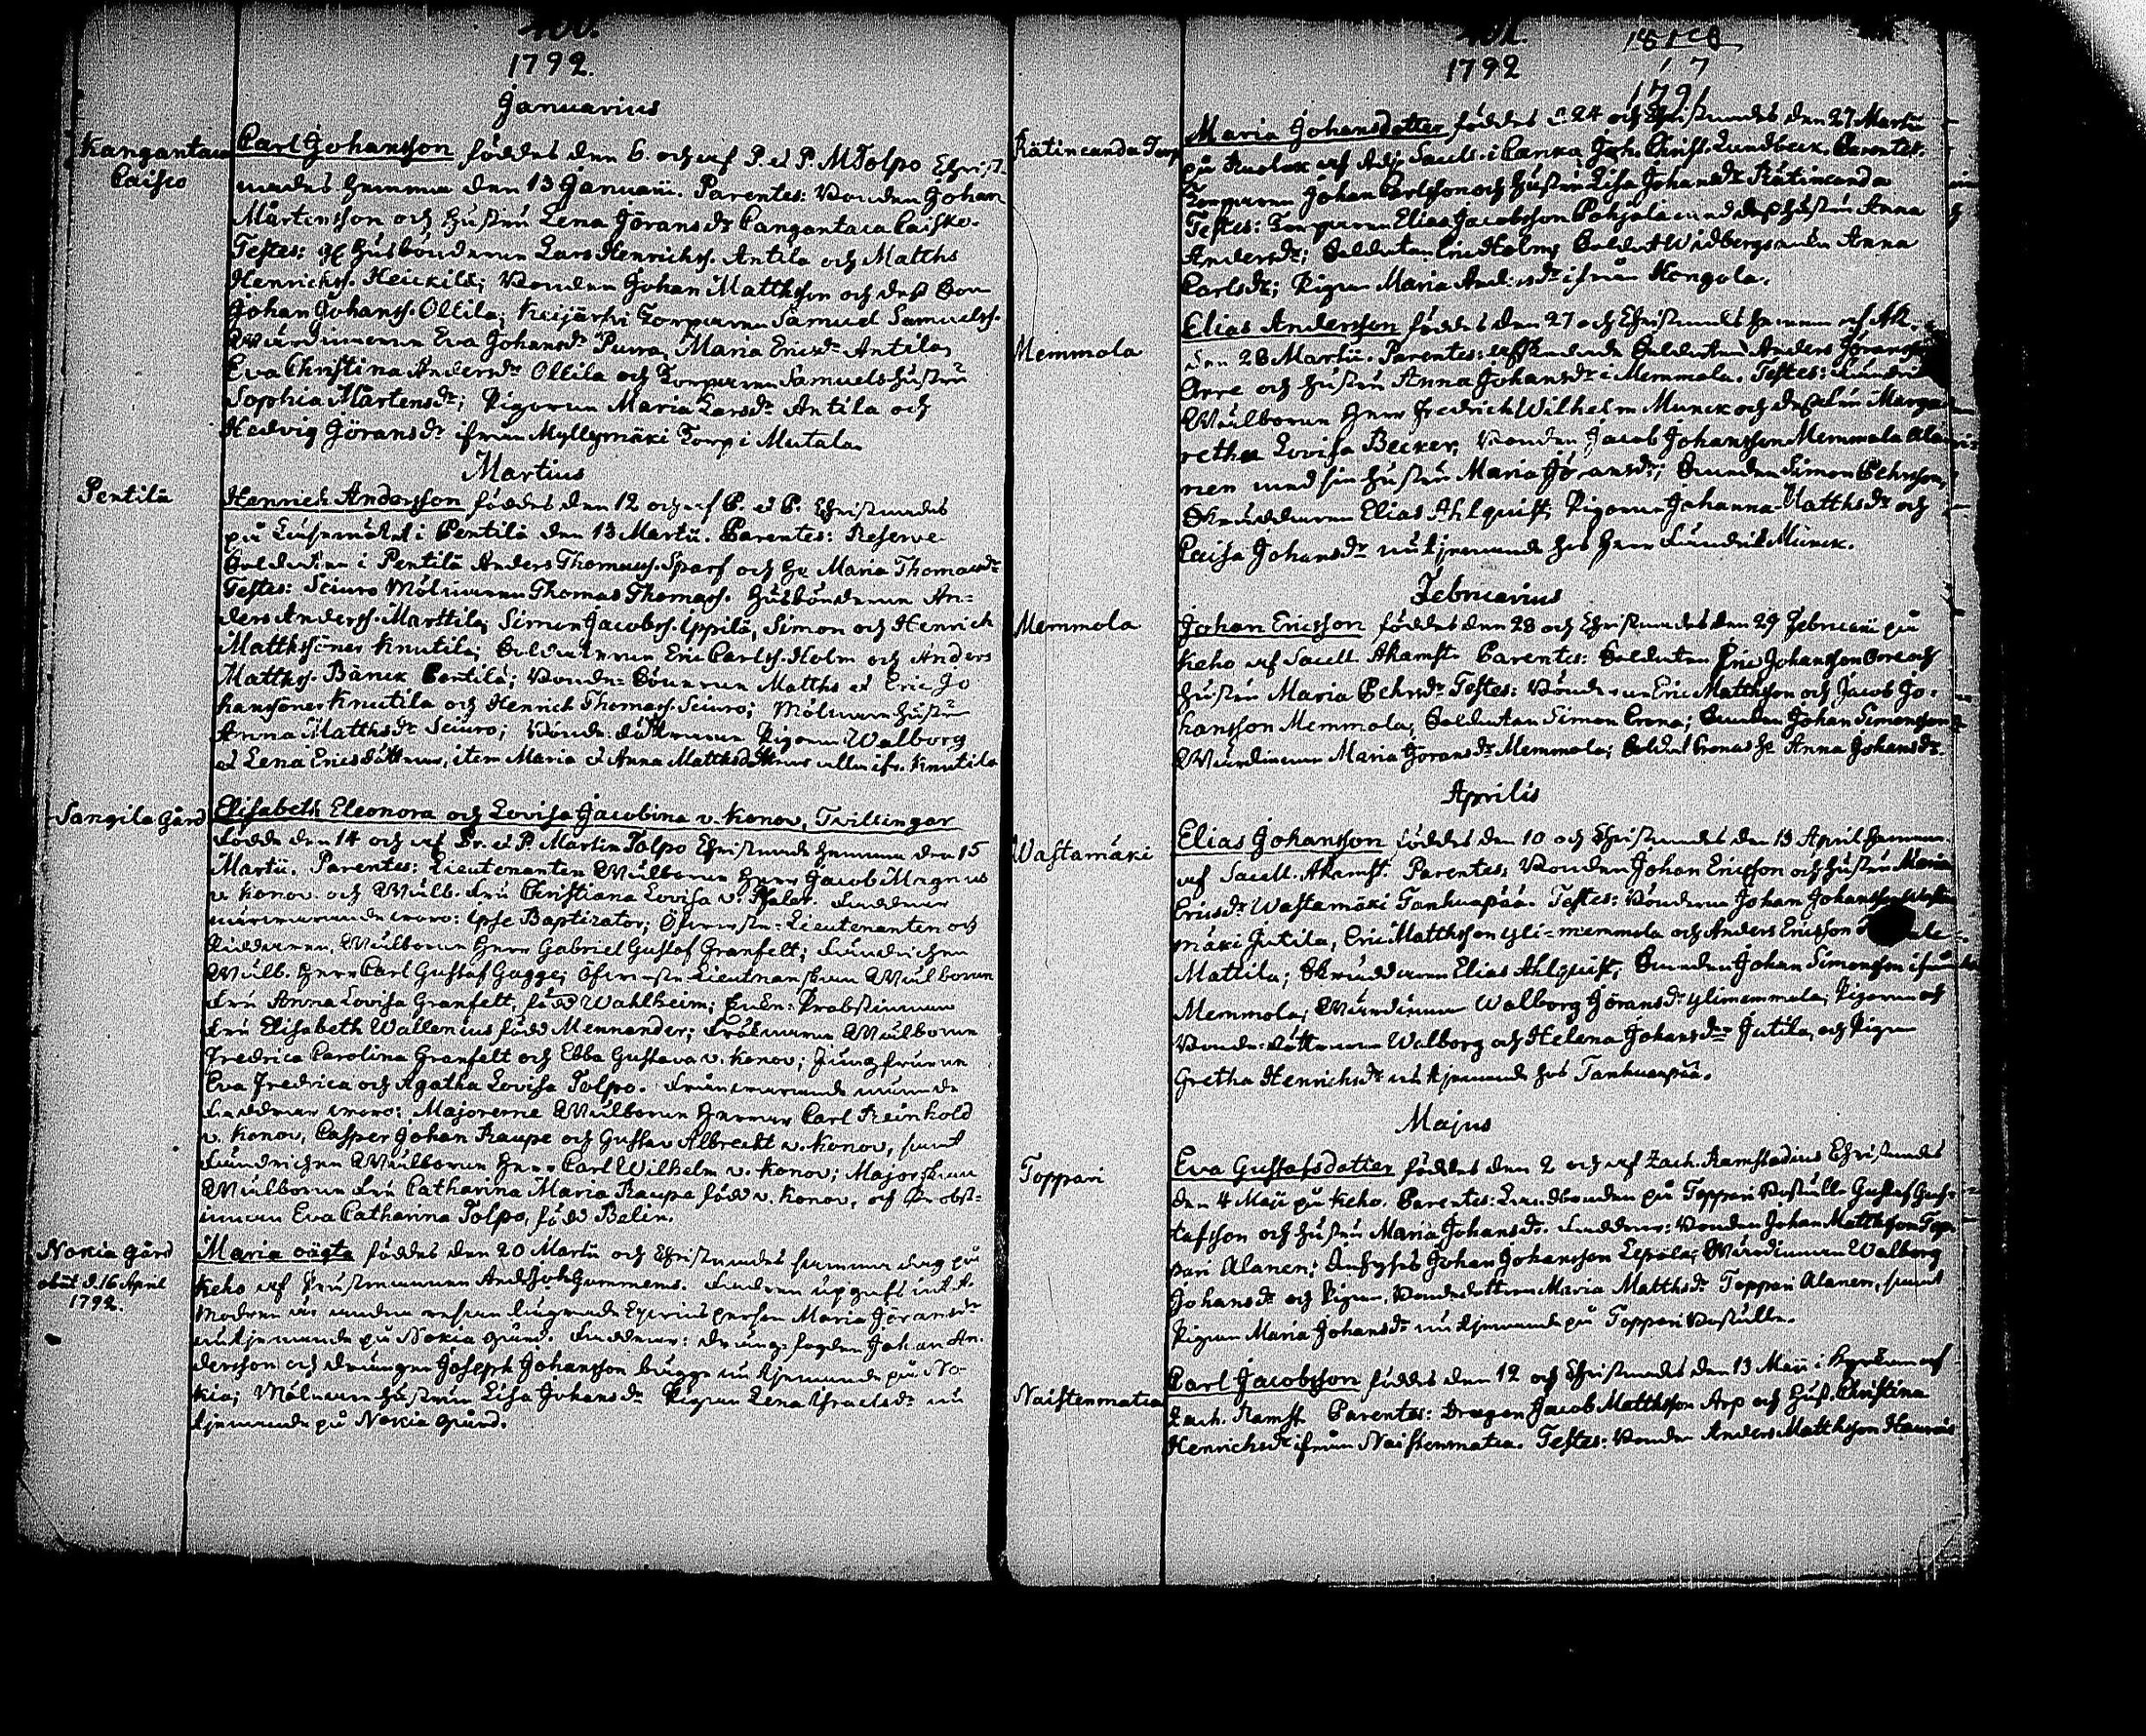 100.
1792.
Januarius
Kangantaca
Caisco
Carl Johansson föddes den 6. och af P. et P. M Tolpo Christ-
nades hemma den 13 Januarii. Parentes: Bonden Johan
Mårtensson och hustru Lena Jöransdr Cangantaca Caisko.
Testes: Husbönderna Lars Henrichss. Antila och Matths
Henrichss. Heickilä; Bonden Johan Matthsson och dess Son
Johan Johanss. Ollila; Keijärfvi Torparen Samuel Samuelss.
Wärdinnorna Eva Johansdr Purra, Maria Ericsdr Antila,
Eva Christina Andersdr Ollila och Torparen Samuels hustru
Sophia Mårtensdr; Pigorna Maria Larsdr Antila och
Hedvig Jöransdr ifrån Myllymäki Torp i Mutala.
Martius
Pentilä
Henrich Andersson föddes den 12 och af P. et P. Christnades
på Läsemötet i Pentilä den 13 Martii. Parentes: Reserve
Soldaten i Pentilä Anders Thomass. Sparf och Hu Maria Thomasdr
Testes: Sciuro Mölnaren Thomas Thomass. Husbönderna An-
ders Anderss. Marttila, Simon Jacobss. Ippilä, Simon och Henrich
Matthssöner Knutila; Soldaterna Eric Carlss. Holm och Anders
Matthss. Bänck Pentilä; Bonde-Sönerna Matths et Eric Jo
hanssöner Knutila och Henrich Thomass. Sciuro; Mölnare hustru
Anna Matthsdr Sciuro; Bonde döttrarna Pigorna Walborg
et Lena Ericsdöttrar, item Maria et Anna Matthsdöttrar alla ifr. Knutila
Sangila Gård
Elisabeth Eleonora och Lovisa Jacobina v. Konov, Tvillingar
födde den 14 och af Pr. et P Martin Tolpo Christnade hemma den 15
Martii. Parentes: Lieutenanten Wälborne Herr Jacob Magnus
v. Konov och Wälb. Fru Christiana Lovisa v. Pfaler. Faddrar
närvarande woro: Ipse Baptizator; Öfverste-Lieutenanten och
Riddaren Wälborne Herr Gabriel Gustaf Granfelt; Fändrichen
Wälb. Herr Carl Gustaf Gagge; Öfverste Lieutnanskan Wälborna
Fru Anna Lovisa Granfelt, född Wahlheim; Enke-Probstinnan
Fru Elisabeth Wallenius född Mennander; Fröknarna Wälborna
Fredrica Carolina Granfelt och Ebba Gustava v. Konov; Jungfrurna
Eva Fredrica och Agatha Lovisa Tolpo. Frånvarande nämnde
Faddrar woro: Majorerne Wälborne Herrar Carl Reinhold
v. Konov, Casper Johan Raupe och Gustav Albrecht v. Konov, samt
Fändrichen Wälborne Herr Carl Wilhelm v. Konov; Majorskan
Wälborna Fru Catharina Maria Raupe född v. Konov, och Probst-
innan Eva Catharina Tolpo, född Belin.
Nokia Gård
obiit d. 16 April
1792.
Maria oägta föddes den 20 Martii och Christnades samma dag på
Keho af Prästmannen And Joh Gummerus. Fadren upgafs intet.
Modren är andra resan lägrade Qvinspersonen Maria Jöransdr
nu tjenande på Nokia gård. Faddrar: drängefogden Johan An-
dersson och drängen Joseph Johansson bägge nu tjenande på No-
kia; Mölnare hustrun Lisa Johansdr Pigan Lena Israelsdr nu
tjenande på Nokia gård.
101.
1792
1791
Rätincanda Torp
Maria Johansdotter föddes d. 24 och Christnades den 27 Martii
på Kuolax af Adj. Sacell. i Canka Joh. Christ. Lundbeck. Parentes.
Torparen Johan Carlsson och hustru Lisa Johansdr Rätincanda
Testes: Torparen Elias Jacobsson Pohjala med dess hustru Anna
Andersdr; Soldaten Eric Holm; Soldat Widbergs enka Anna
Carlsdr; Pigan Maria Andersdr ifrån Kongola.
Memmola
Elias Andersson föddes den 27 och Christnades hemma af Ak.
den 28 Martii. Parentes: Afskedade Soldaten Anders Jöransson
Orre och hustru Anna Johansdr i Memmola. Testes: Fändrich
Wälborne Herr Fredrich Wilhelm Munck och dess Fru Marga
retha Lovisa Becker; Bonden Jacob Johansson Memmola Ala
nen med sin hustru Maria Jöransdr; Bonden Simon Pehrsson,
Skräddaren Elias Ahlquist, Pigorna Johanna Matthsdr och
Caisa Johansdr nu tjenande hos Herr Fändrik Munck.
Februarius
Memmola
Johan Ericsson föddes den 28 och Christnades den 29 Februarii på
Keho af Sacell. Akamst. Parentes: Soldaten Eric Johansson Orre och
hustru Maria Pehrsdr Testes: Bönderna Eric Matthsson och Jacob Jo-
hansson Memmola; Soldaten Simon Crona; Bonden Johan Simonsson
Wärdinnan Maria Jöransdr Memmola; Soldat Cronas Hu Anna Johansdr.
Aprilis
Wastamäki
Elias Johansson föddes den 10 och Christnades den 13 April hemma
af Sacell. Akamst. Parentes: Bonden Johan Ericsson och hustru Maria
Ericsdr Wastamäki Tanhuapää. Testes: Bönderna Johan Johansson Wasta
mäki Jutila, Eric Matthsson Yli-memmola och Anders Ericsson
Mattila; Skräddaren Elias Ahlquist; Bonden Johan Simonsson ifrån
Memmola; Wärdinnan Walborg Jöransdr Ylimemmola; Pigorna och
Bonde-döttrarna Walborg och Helena Johansdr Jutila, och Pigan
Gretha Henrichsdr nu tjenande hos Tanhuanpää.
Majus
Toppari
Eva Gustafsdotter föddes den 2 och af Zach. Ramstadius Christnades
den 4 Maji på Keho. Parentes: Landbonden på Toppari Boställe Gustaf Gus-
tafsson och hustru Maria Johansdr. Faddrar: Bonden Johan Matthsson Top-
pari Alanen; Johan Johansson Lepola; Wärdinnan Walborg
Johansdr och Pigan, Bondedottren Maria Matthsdr Toppari Alanen, samt
Pigan Maria Johansdr nu tjenande på Toppari Boställe.
Naistenmatca
Carl Jacobsson föddes den 12 och Christnades den 13 Maji i Kyrkan af
Zach. Ramst. Parentes: Dragon Jacob Matthsson Arp och Hust. Christina
Henrichsdr ifrån Naistenmatca. Testes: Bonden Anders Matthsson